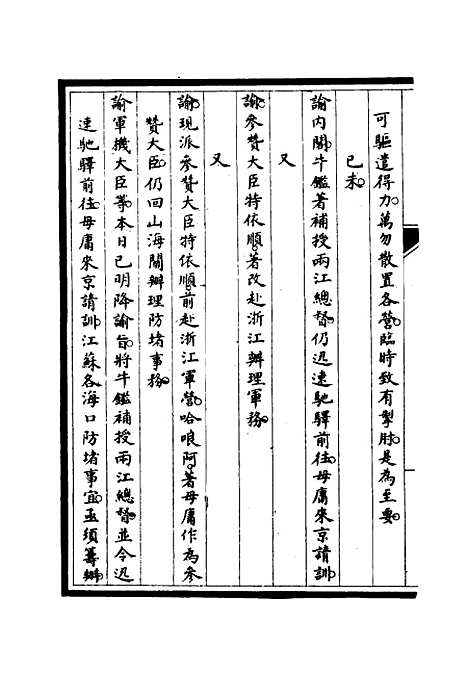 可驅遣得力。萬勿散置各營。臨時致有掣肘。是為至要。
已未。
諭內閣。牛鑑著補授兩江總督。仍迅速馳驛前往。毋庸來京請訓。
又
諭。參贊大臣特依順。著改赴浙江辦理軍務。
又
諭。現派參贊大臣特依順。前赴浙江軍營。哈哴阿。著毋庸作為參
贊大臣。仍回山海關辦理防堵事務。
諭軍機大臣等。本日已明降諭旨。將牛鑑補授兩江總督。並令迅
速馳驛前往。毋庸來京請訓。江蘇各海口防堵事宜。亟須籌辦。